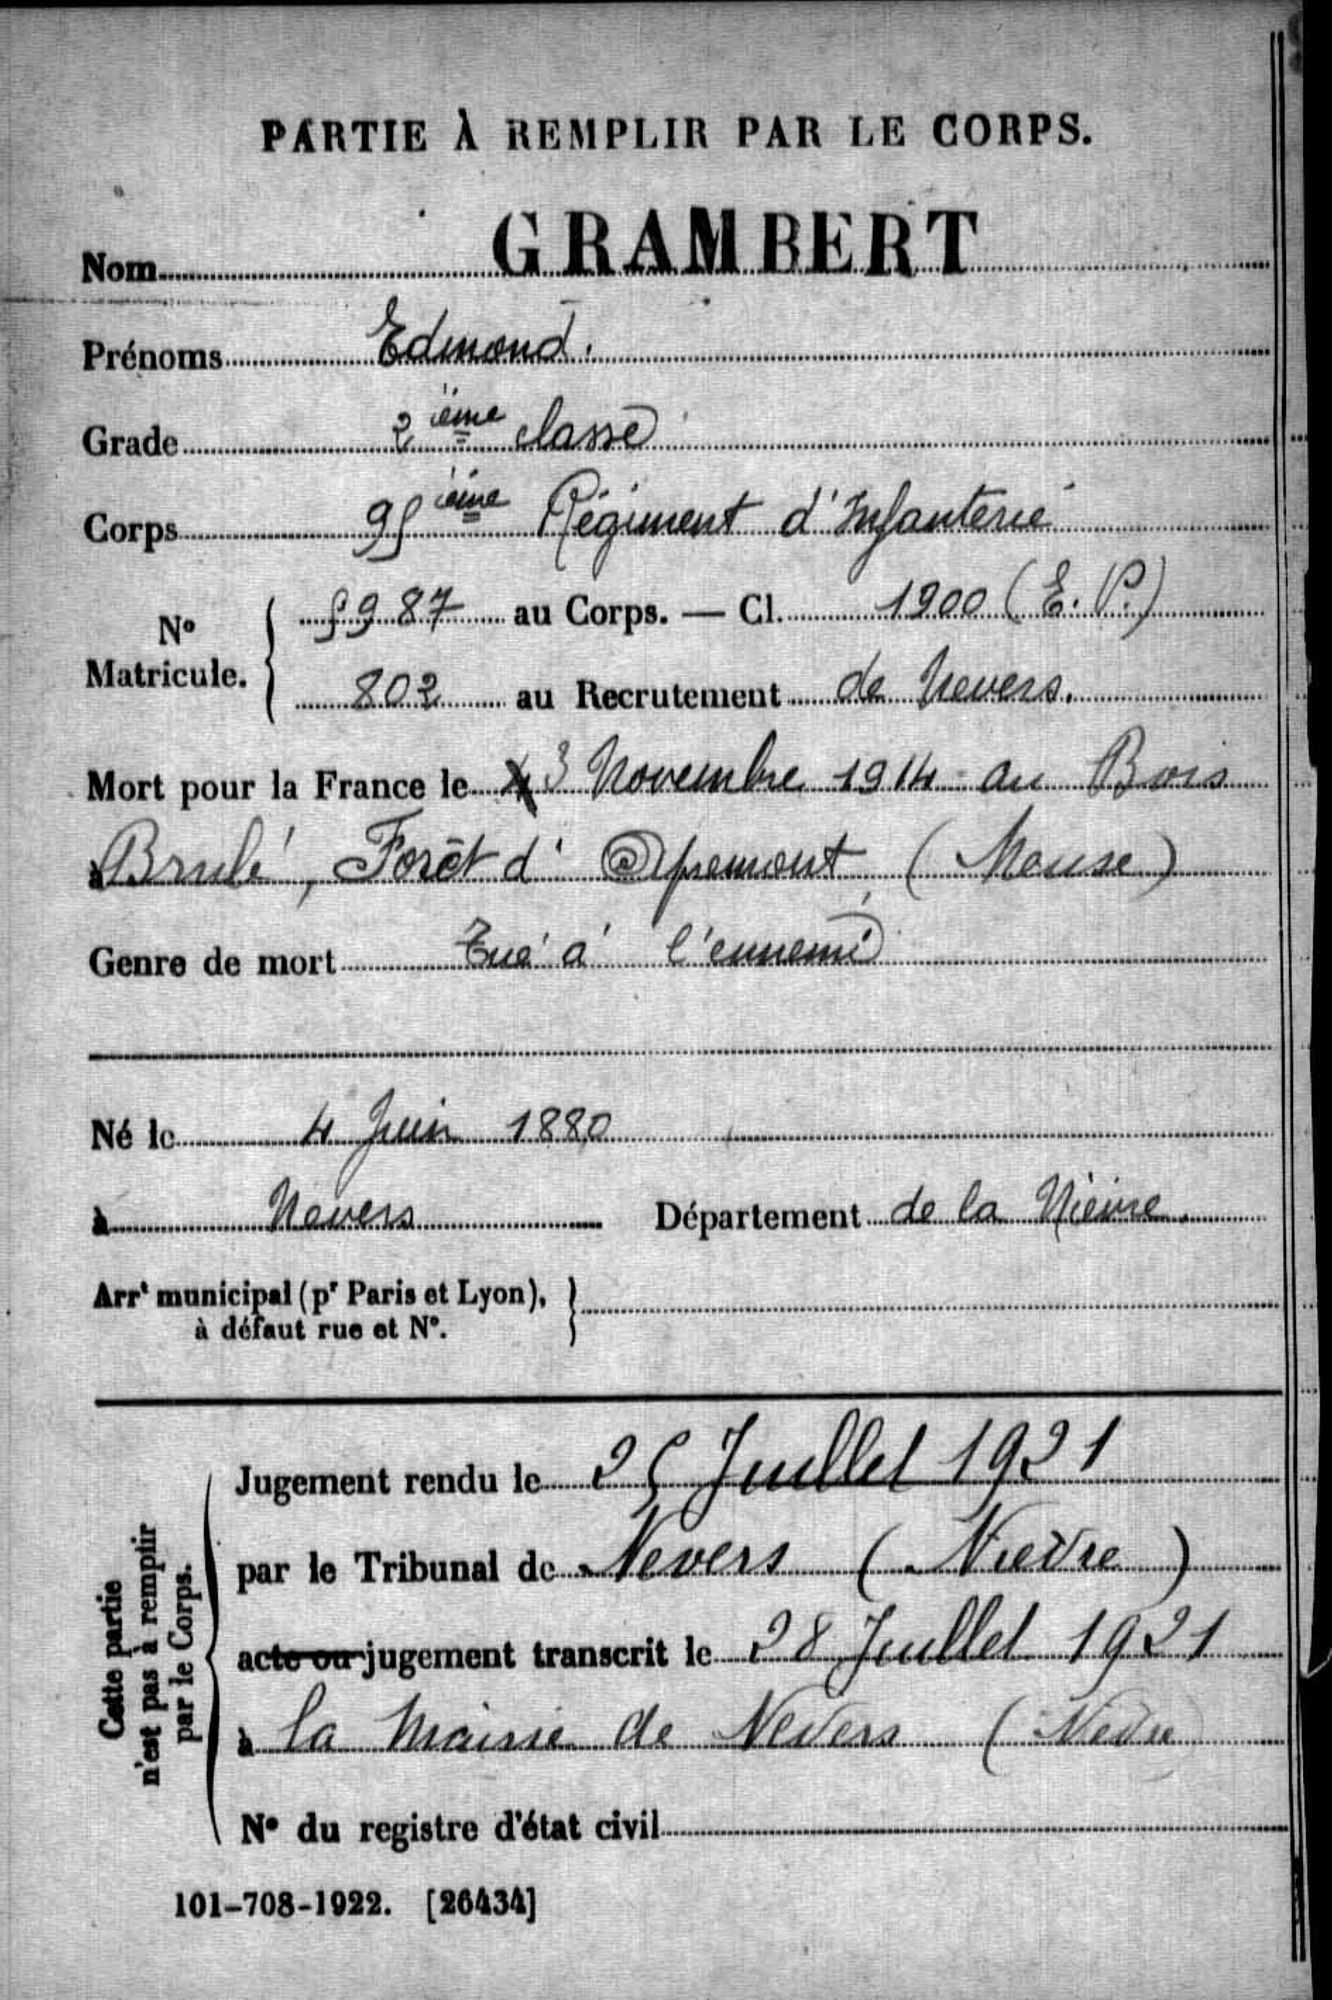 PARTIE À REMPLIR PAR LE CORPS.
Nom GRAMBERT
Prénoms Edmond.
Grade 2 ième classe
Corps 95 ième Régiment d'Infanterie
N° Matricule. { 5987 au Corps. — Cl. 1900 (E. V.)
802 au Recrutement de Nevers.
Mort pour la France le 3 Novembre 1914 au Bois
à Brulé, Forêt d'Apremont (Meuse)
Genre de mort Tué à l'ennemi
Né le 4 Juin 1880
à Nevers Département de la Nièvre.
Arrt municipal (pr Paris et Lyon), }
à défaut rue et N°.
Cette partie
n'est pas à remplir
par le Corps.
Jugement rendu le 25 Juillet 1921
par le Tribunal de Nevers (Nièvre)
acte ou jugement transcrit le 28 Juillet 1921
à la Mairie de Nevers (Nièvre
N° du registre d'état civil
101-708-1922. [26434]